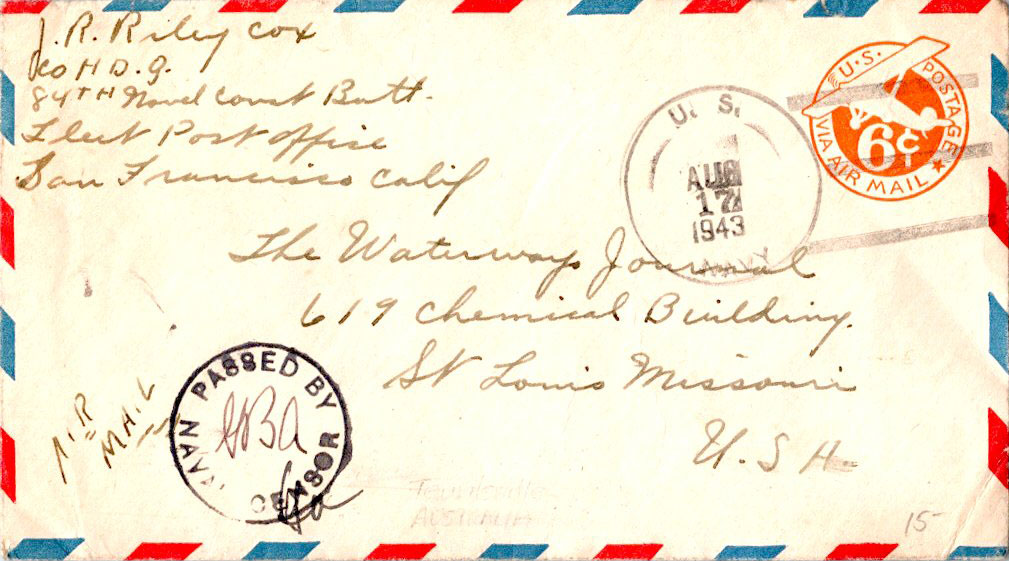 J. R. Riley Cox
Co H D. 9.
84TH Naval Const Batt.
Fleet Post office
San Francisco Calif
U. S.
AUG
17
1943
NAVY
U.S. POSTAGE
6¢
VIA AIR MAIL
The Waterways Journal
619 Chemical Building.
St Louis Missouri
U. S A.
AIR
MAIL
PASSED BY
NAVAL CENSOR
Townsville
Australia
15-